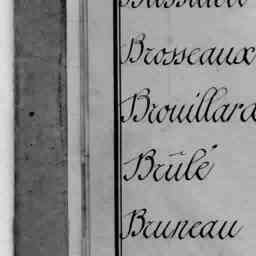 Brosseaux
Brouillard
Brûlé
Bruneau